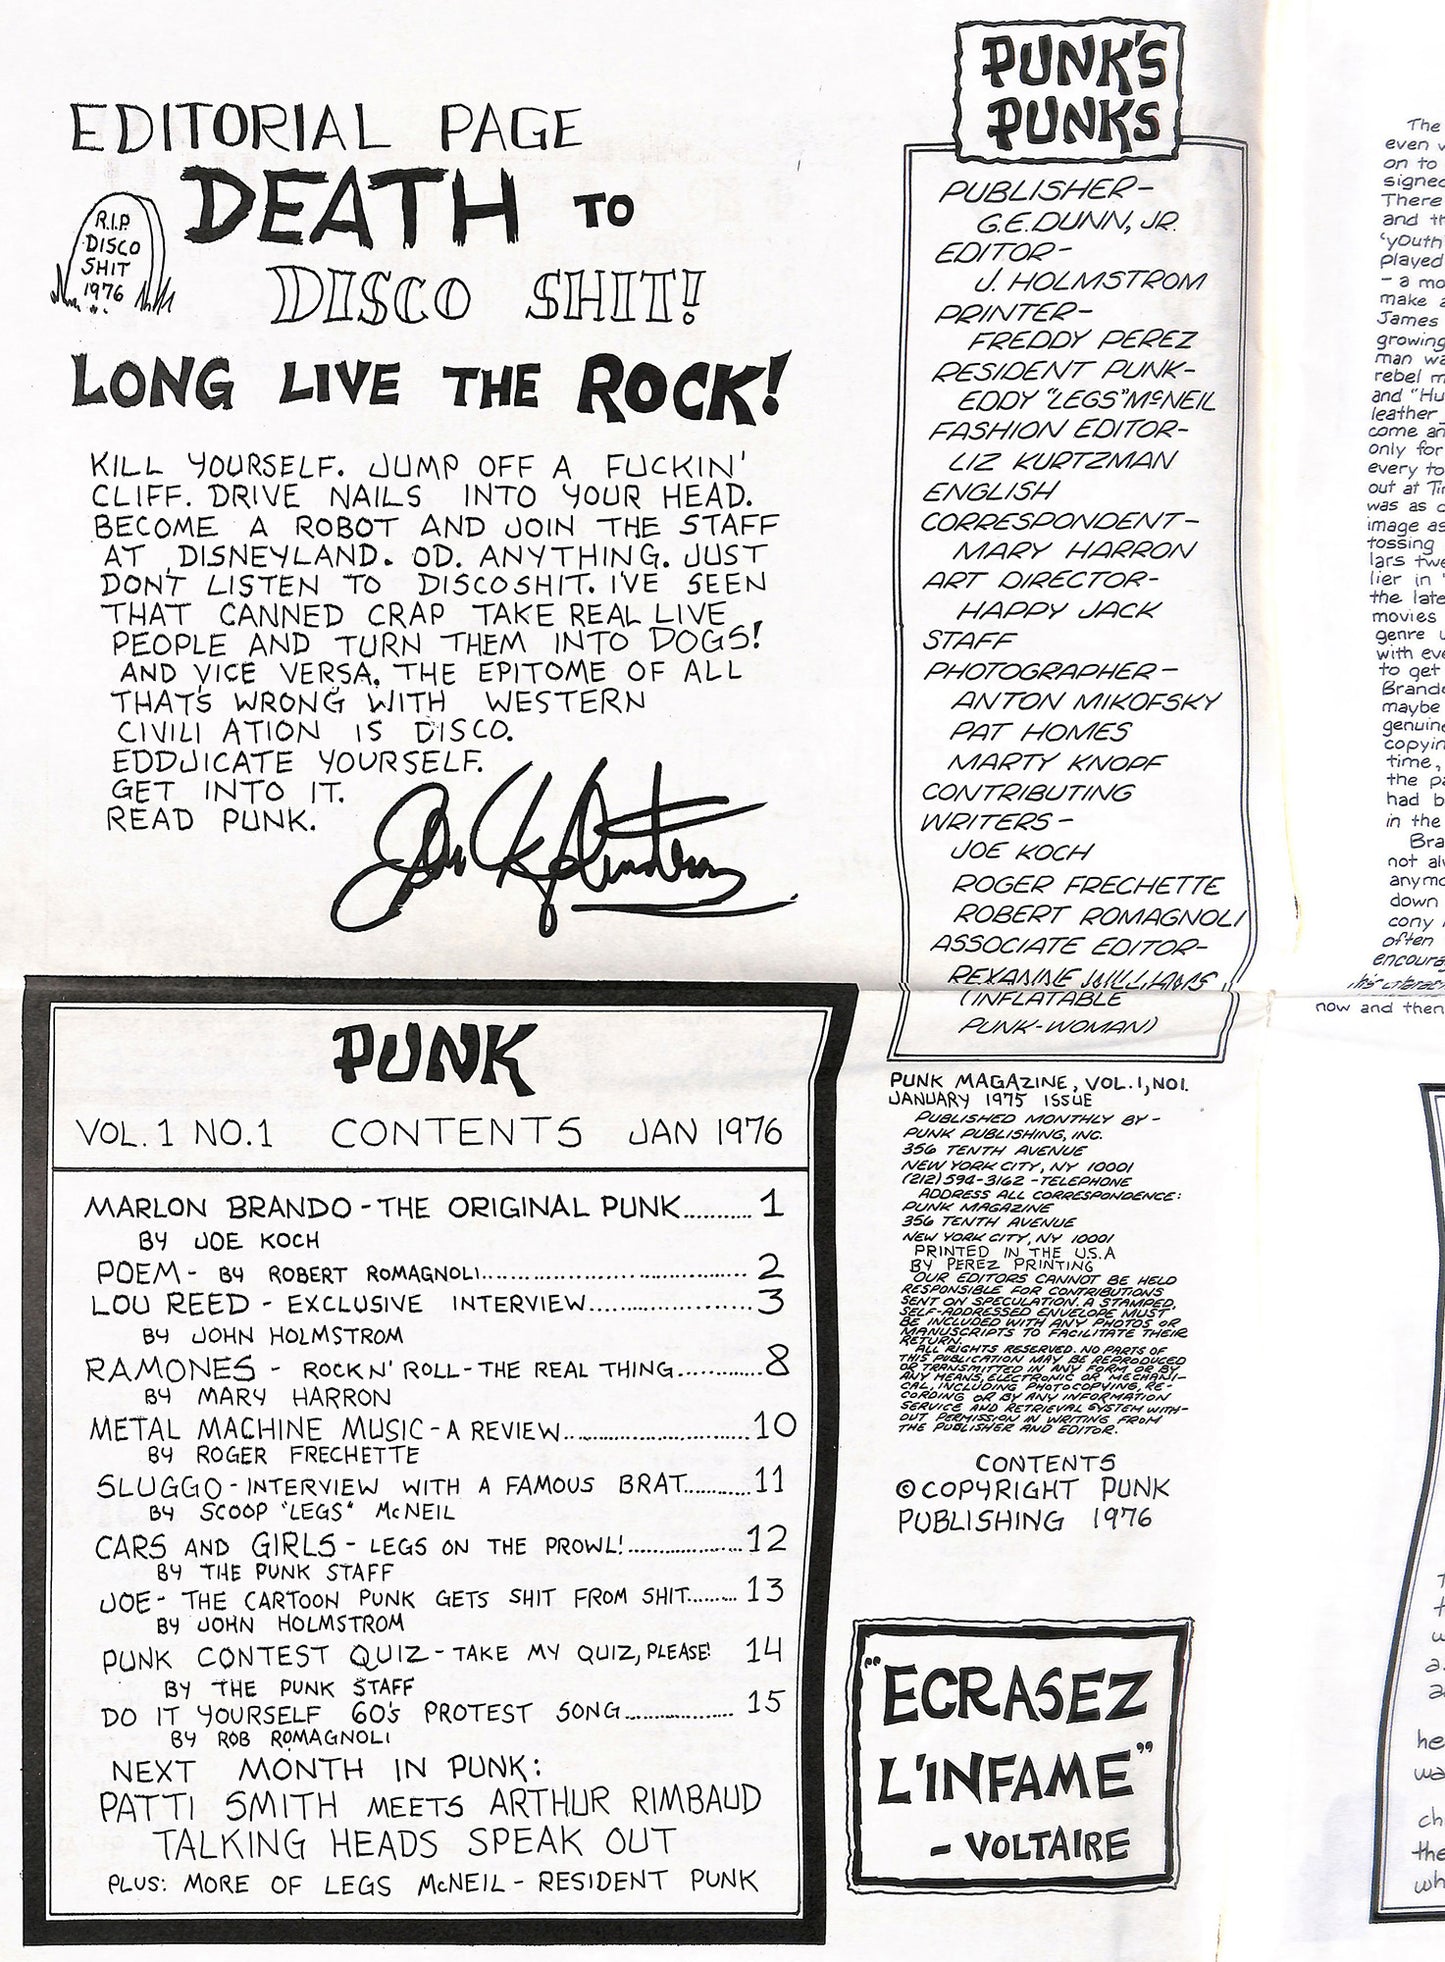 EDITORIAL PAGE
R.I.P.
DISCO
SHIT
1976
DEATH TO
DISCO SHIT!
LONG LIVE THE ROCK!
KILL YOURSELF. JUMP OFF A FUCKIN'
CLIFF. DRIVE NAILS INTO YOUR HEAD.
BECOME A ROBOT AND JOIN THE STAFF
AT DISNEYLAND. OD. ANYTHING. JUST
DON'T LISTEN TO DISCOSHIT. I'VE SEEN
THAT CANNED CRAP TAKE REAL LIVE
PEOPLE AND TURN THEM INTO DOGS!
AND VICE VERSA. THE EPITOME OF ALL
THAT'S WRONG WITH WESTERN
CIVILI ATION IS DISCO.
EDDJICATE YOURSELF.
GET INTO IT.
READ PUNK.
John Holmstrom
PUNK
VOL. 1 NO.1 CONTENTS JAN 1976
MARLON BRANDO - THE ORIGINAL PUNK.......... 1
BY JOE KOCH
POEM - BY ROBERT ROMAGNOLI.......... 2
LOU REED - EXCLUSIVE INTERVIEW.......... 3
BY JOHN HOLMSTROM
RAMONES - ROCK N' ROLL - THE REAL THING.......... 8
BY MARY HARRON
METAL MACHINE MUSIC - A REVIEW.......... 10
BY ROGER FRECHETTE
SLUGGO - INTERVIEW WITH A FAMOUS BRAT.......... 11
BY SCOOP "LEGS" McNEIL
CARS AND GIRLS - LEGS ON THE PROWL!.......... 12
BY THE PUNK STAFF
JOE - THE CARTOON PUNK GETS SHIT FROM SHIT.......... 13
BY JOHN HOLMSTROM
PUNK CONTEST QUIZ - TAKE MY QUIZ, PLEASE! 14
BY THE PUNK STAFF
DO IT YOURSELF 60's PROTEST SONG.......... 15
BY ROB ROMAGNOLI
NEXT MONTH IN PUNK:
PATTI SMITH MEETS ARTHUR RIMBAUD
TALKING HEADS SPEAK OUT
PLUS: MORE OF LEGS McNEIL - RESIDENT PUNK
PUNK'S
PUNKS
PUBLISHER-
G.E. DUNN, JR.
EDITOR-
J. HOLMSTROM
PRINTER-
FREDDY PEREZ
RESIDENT PUNK-
EDDY "LEGS" McNEIL
FASHION EDITOR-
LIZ KURTZMAN
ENGLISH
CORRESPONDENT-
MARY HARRON
ART DIRECTOR-
HAPPY JACK
STAFF
PHOTOGRAPHER-
ANTON MIKOFSKY
PAT HOMES
MARTY KNOPF
CONTRIBUTING
WRITERS-
JOE KOCH
ROGER FRECHETTE
ROBERT ROMAGNOLI
ASSOCIATE EDITOR-
REXANNE WILLIAMS
(INFLATABLE
PUNK-WOMAN)
PUNK MAGAZINE, VOL. 1, NO1.
JANUARY 1975 ISSUE
PUBLISHED MONTHLY BY-
PUNK PUBLISHING, INC.
356 TENTH AVENUE
NEW YORK CITY, NY 10001
(212) 594-3162 - TELEPHONE
ADDRESS ALL CORRESPONDENCE:
PUNK MAGAZINE
356 TENTH AVENUE
NEW YORK CITY, NY 10001
PRINTED IN THE U.S.A
BY PEREZ PRINTING
OUR EDITORS CANNOT BE HELD
RESPONSIBLE FOR CONTRIBUTIONS
SENT ON SPECULATION. A STAMPED,
SELF-ADDRESSED ENVELOPE MUST
BE INCLUDED WITH ANY PHOTOS OR
MANUSCRIPTS TO FACILITATE THEIR
RETURN.
ALL RIGHTS RESERVED. NO PARTS OF
THIS PUBLICATION MAY BE REPRODUCED
OR TRANSMITTED IN ANY FORM OR BY
ANY MEANS, ELECTRONIC OR MECHANI-
CAL, INCLUDING PHOTOCOPYING, RE-
CORDING OR BY ANY INFORMATION
SERVICE AND RETRIEVAL SYSTEM WITH-
OUT PERMISSION IN WRITING FROM
THE PUBLISHER AND EDITOR.
CONTENTS
© COPYRIGHT PUNK
PUBLISHING 1976
"ECRASEZ
L'INFAME"
- VOLTAIRE
The
even
on to
signed
There
and
'youth
played
- a
make
James
growing
man
rebel
and "Hu
leather
come
only for
every to
out at
was as
image as
tossing
lars
lier in
the late
movies
genre
with
to get
maybe
genuine
copyin
time,
the
had b
in the
not
down
cony
often
encourag
now and then
he
ch
the
wh